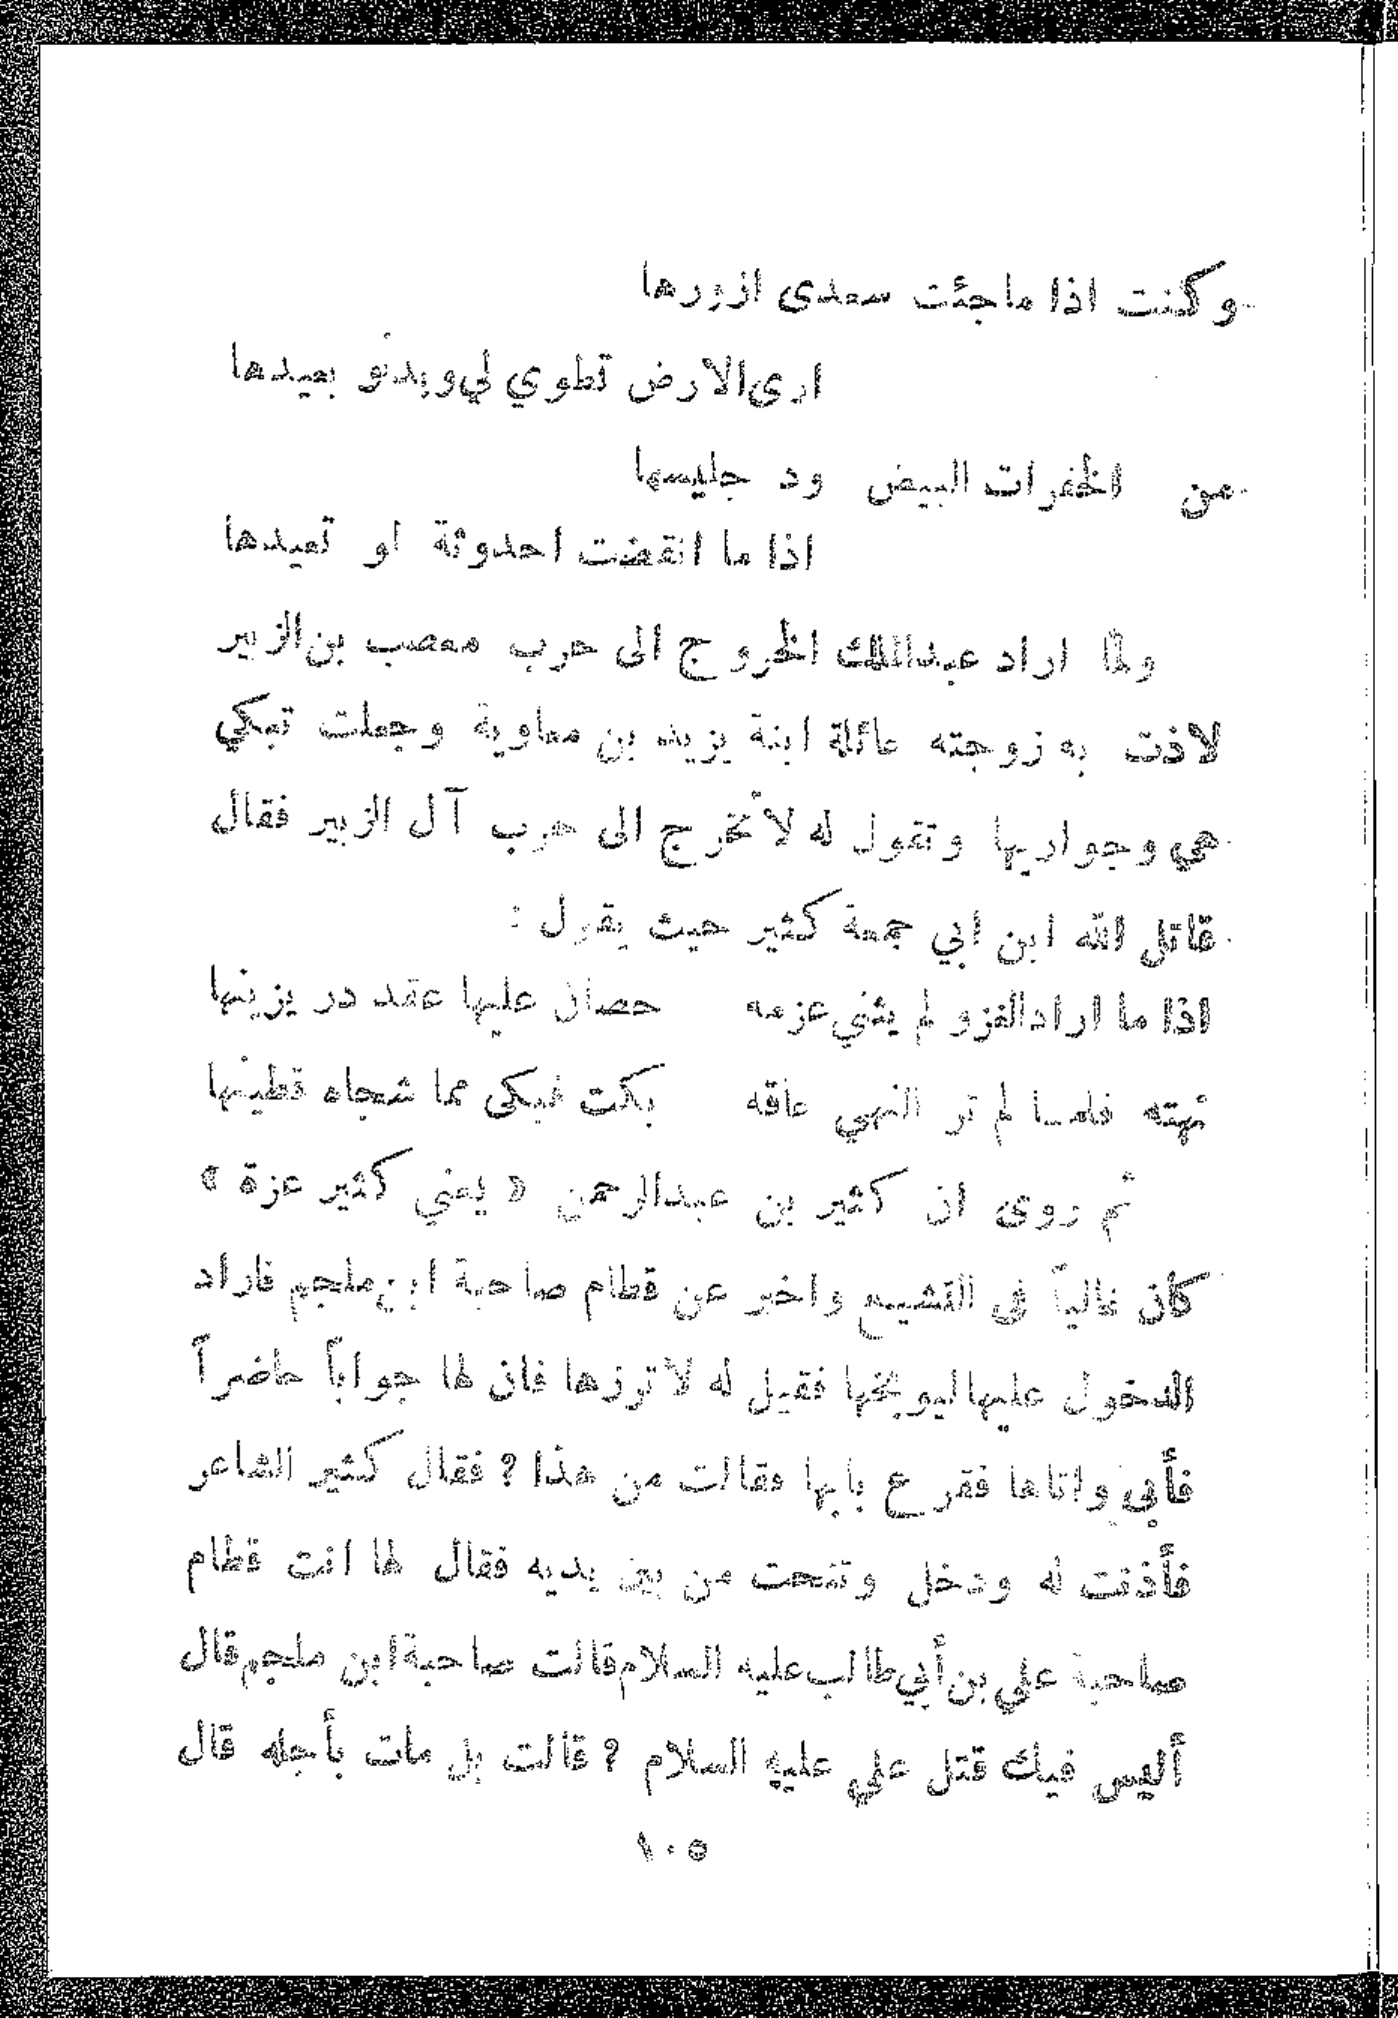 وكنت اذا ماجئت سعدى ازورها
ارى الارض تطوي لي ويدنو بعيدها
من الخفرات البيض ود جليسها
اذا ما انقضت احدوثة او تعيدها
ولما اراد عبدالملك الخروج الى حرب مصعب بن الزبير
لاذت به زوجته عائلة ابنة يزيد بن معاوية وجعلت تبكي
هي وجواريها وتقول له لا تخرج الى حرب آل الزبير فقال
قاتل الله ابن ابي جمعة كثير حيث يقول :
اذا ما اراد الغزو لم يثني عزمه حصان عليها عقد در يزينها
نهته فلمسا لم تر النهي عاقه بكت فبكى مما شجاه قطينها
ثم روى ان كثير بن عبدالرحمن « يعني كثير عزة »
كان غالياً في التشييع واخبر عن قطام صاحبة ابن ملجم فاراد
الدخول عليها ليوبخها فقيل له لا تزرها فان لها جواباً حاضراً
فأبى واتاها فقرع بابها فقالت من هذا ? فقال كثير الشاعر
فأذنت له ودخل وتنحت من بين يديه فقال لها انت قطام
صاحبة علي بن أبي طالب عليه السلام قالت صاحبة ابن ملجم قال
أليس فيك قتل علي عليه السلام ? قالت بل مات بأجله قال
١٠٥